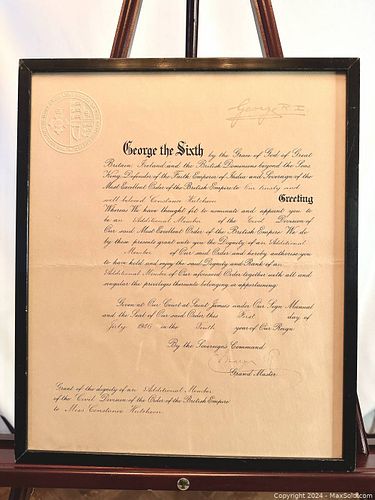 George R I
George the Sixth by the Grace of God of Great
Britain, Ireland and the British Dominions beyond the Seas
King, Defender of the Faith, Emperor of India and Sovereign of the
Most Excellent Order of the British Empire to Our trusty and
well beloved Constance Hutchison
Greeting
Whereas We have thought fit to nominate and appoint you to
be an Additional Member of the Civil Division of
Our said Most Excellent Order of the British Empire We do
by these presents grant unto you the Dignity of an Additional
Member of Our said Order and hereby authorise you
to have hold and enjoy the said Dignity and Rank of an
Additional Member of Our aforesaid Order together with all and
singular the privileges thereunto belonging or appertaining.
Given at Our Court at Saint James's under Our Sign Manual
and the Seal of Our said Order this First day of
July 1946 in the Tenth year of Our Reign.
By the Sovereign's Command
Grand Master.
Grant of the dignity of an Additional Member
of the Civil Division of the Order of the British Empire
to Miss Constance Hutchison
Copyright © 2024 - MaxSold.com